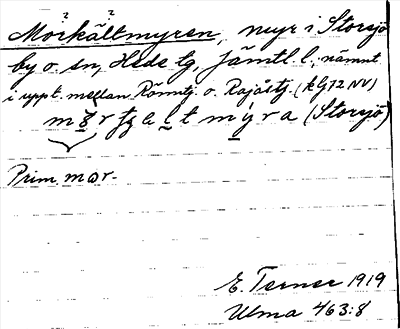 ? ?
Morkältmyren, myr i Storsjö
by o. sn, Hede tg, Jämtl. l., nämnt
i uppt. mellan Rönntj. o. Rajåstj. (kG72 NV)
myra (Storsjö)
Prim. mor-
E. Terner 1919
Ulma 463:8